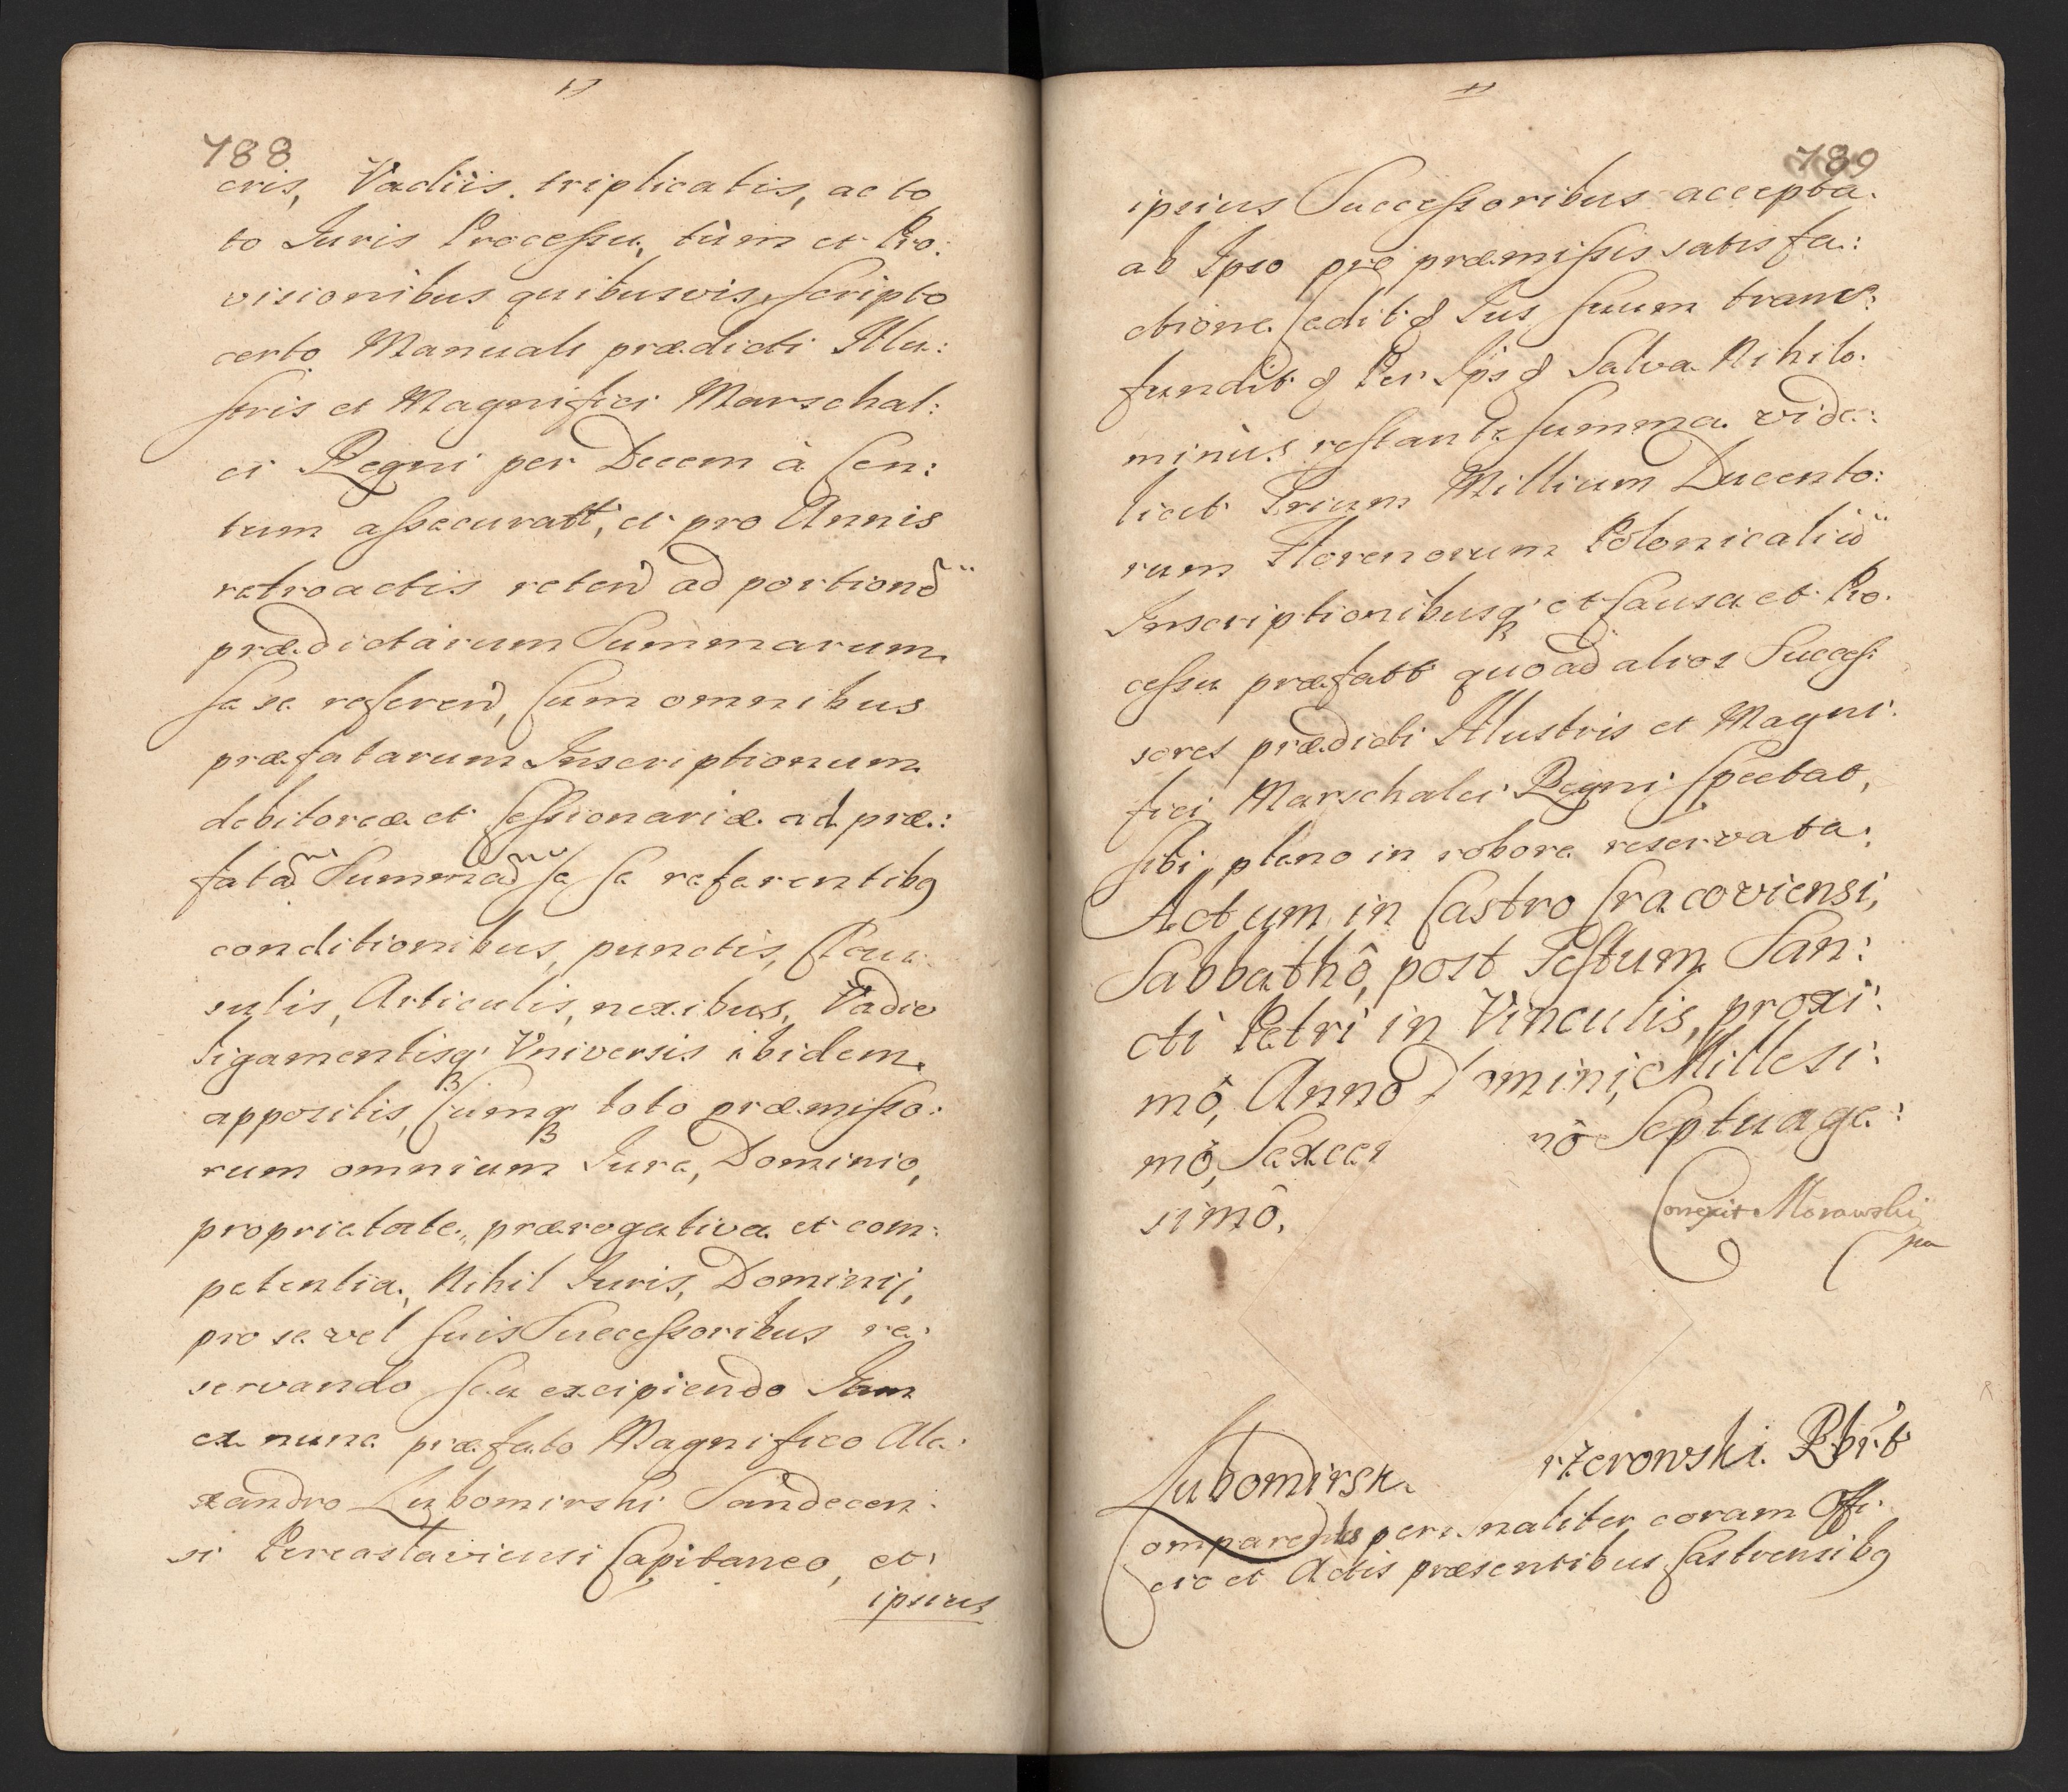 788
cris, Vadiis triplicatis, ac to
to Iuris Processu, tùm et Pro:
visionibus quibusvis, Scripto
certo Manuali prædicti Illu:
stris et Magnifici Marschal:
ci Regni per Decem à Cen:
tum assecuratt, et pro Annis
retroactis reteñ ad portionẽ
prædictarum Summarum
se se refereñ, Cum omnibus
præfatarum Inscriptionum
debitoreæ et Cessionariæ ad præ:
fatas Summas se se referentibꝰ
conditionibus, punctis, Clau:
sulis, Articulis, nexibus, Vadio
ligamentisqꝫ Vniversis ibidem
appositis, Cumqꝫ toto præmisso:
rum omnium Iure, Dominio,
proprietate, prærogativa et com:
petentia, Nihil Iuris, Dominij,
pro se vel suis Successoribus re:
servando seu excipiendo Iam
ex nunc præfato Magnifico Ale:
xandro Lubomirski Sandecen:
si Pereaslaviensi Capitaneo, et
ipsius
789
ipsius Successoribus accepta
ab Ipso pro præmissis satisfa:
ctione Cedit ꝗ Ius suum trans:
fundit ꝗ Per Ips ꝗ Salva Nihilo
minùs restante summa vide:
licet Trium Millium Ducento:
rum Florenorum Polonicaliũ
Inscriptionibusqꝫ et Causa et Pro
cessu præfatt quoad alios Succes:
sores prædicti Illustris et Magni:
fici Marschalci Regni spectat,
sibi pleno in robore reservata.
Actum in Castro Cracoviensi,
Sabbathô, post Festum San:
cti Petri in Vinculis, proxi:
mô, Anno Domini, Millesi:
mô, Sexcen nô Septuage:
simô.
Correxit Morawski
Lubomirsk rzerowski. Rbit
Comparentes personaliter coram Offi:
cio et Actis præsentibus Castrensibꝰ